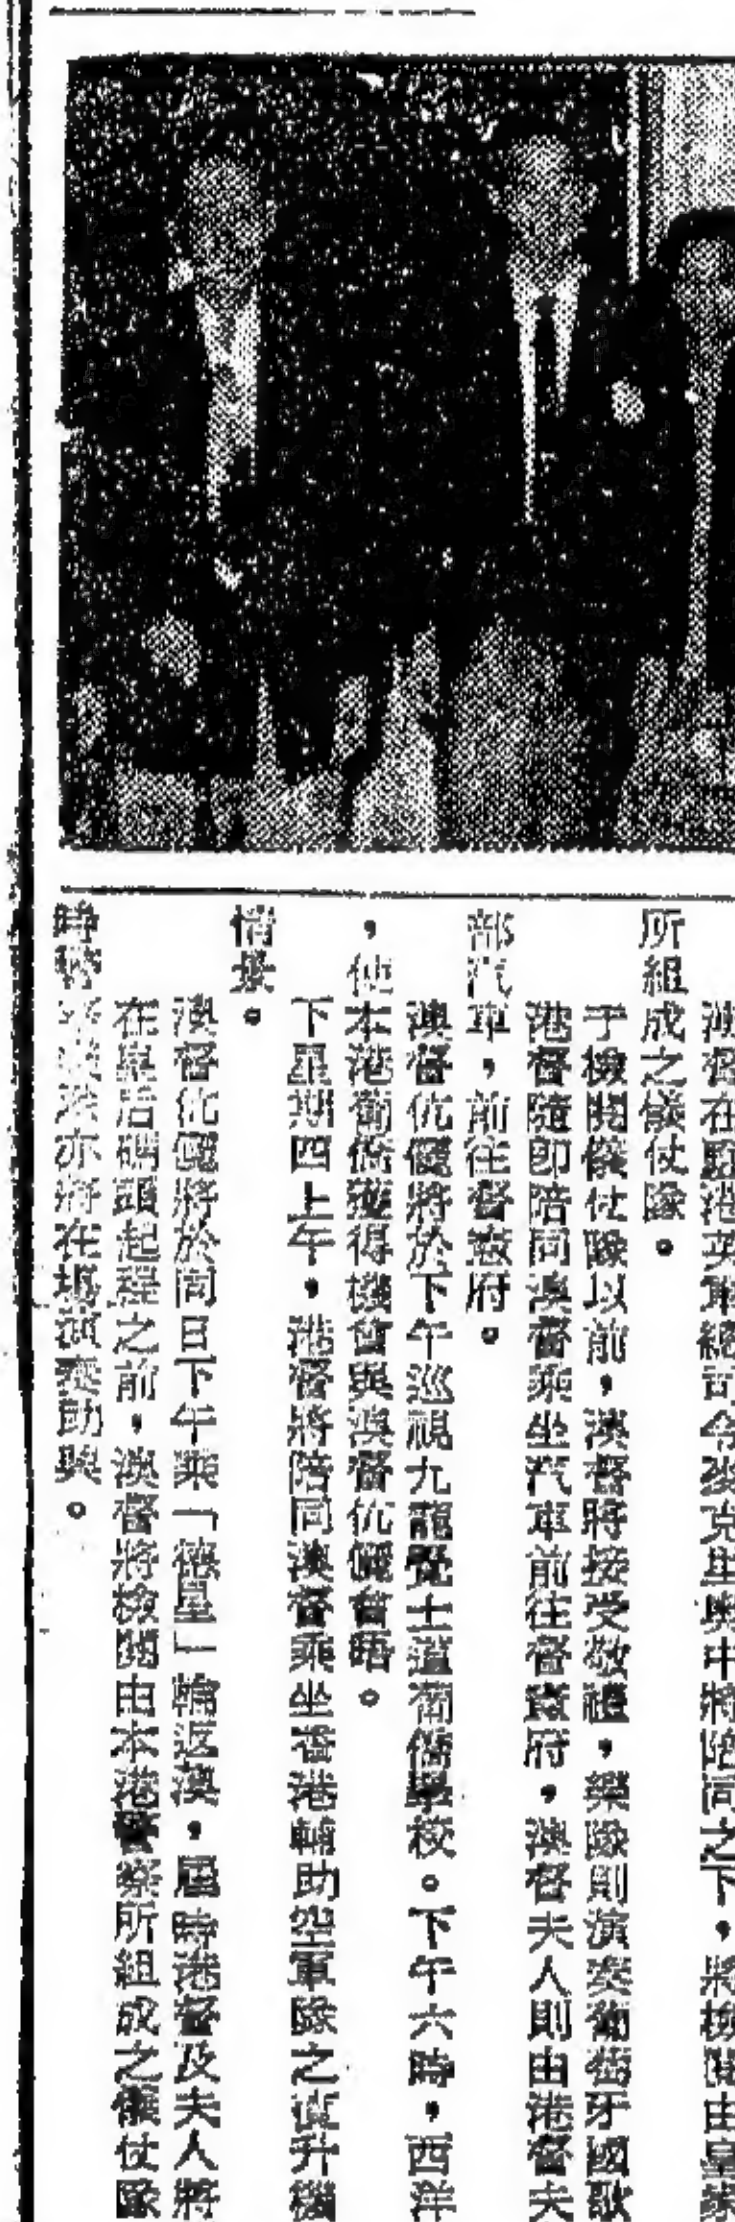 澳督在駐港英軍總司令麥克里奧中將陪同之下，將檢閱由皇家
所組成之儀仗隊。
于檢閱儀仗隊以前，澳督將接受敬禮，樂隊則演奏葡萄牙國歌
港督隨即陪同澳督乘坐汽車前往督憲府，澳督夫人則由港督夫
部汽車，前往督憲府。
澳督伉儷將於下午巡視九龍覺士道葡僑學校。下午六時，西洋
，使本港葡僑獲得機會與澳督伉儷會晤。
下星期四上午，港督將陪同澳督乘坐香港輔助空軍隊之直升機
情景。
澳督伉儷將於同日下午乘「德星」輪返澳，屆時港督及夫人將
在皇后碼頭起程之前，澳督將檢閱由本港警察所組成之儀仗隊
時警察樂隊亦將在場演奏助興。